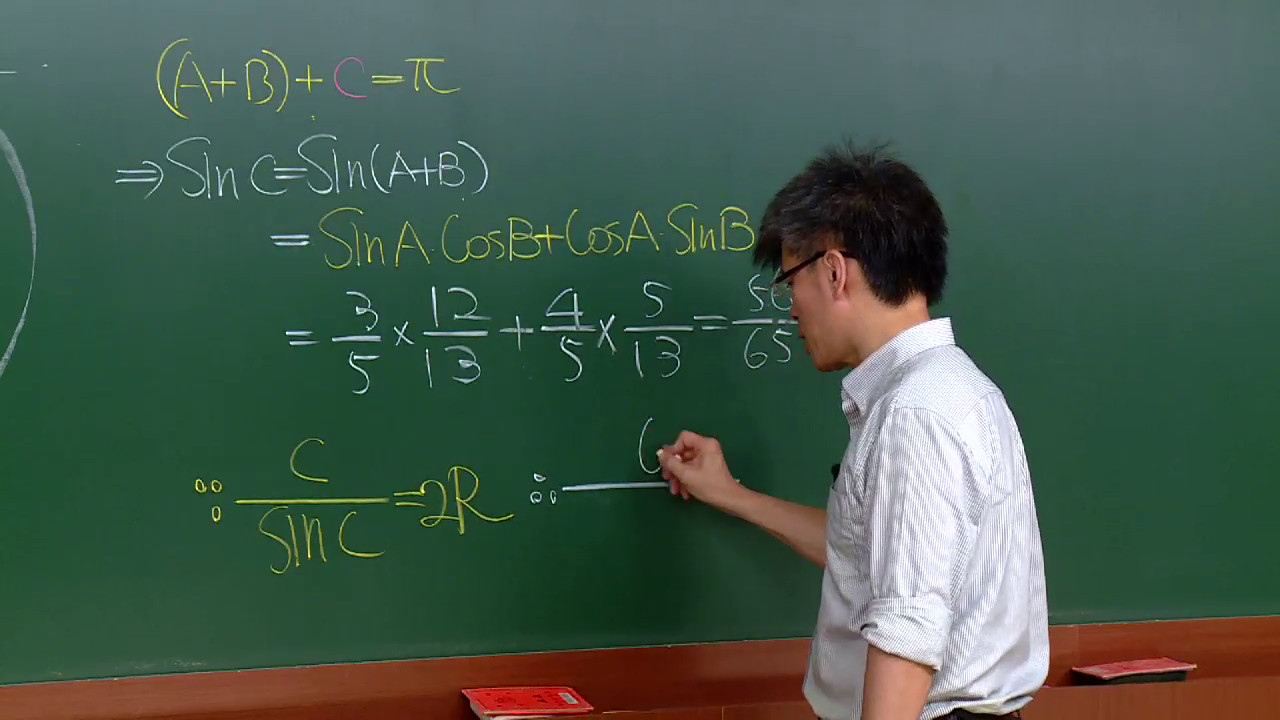 (A+B)+C=π
⇒Sin C=Sin(A+B)
=SinA·CosB+CosA·SinB
= 3/5 × 12/13 + 4/5 × 5/13 = 5 /65
∵ C/Sin C = 2R ∴